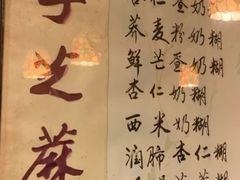 芝麻
仁蛋奶糊
荞麦粉蛋奶糊
鲜芒蛋奶糊
杏仁奶糊
西米奶糊
润肺杏仁糊